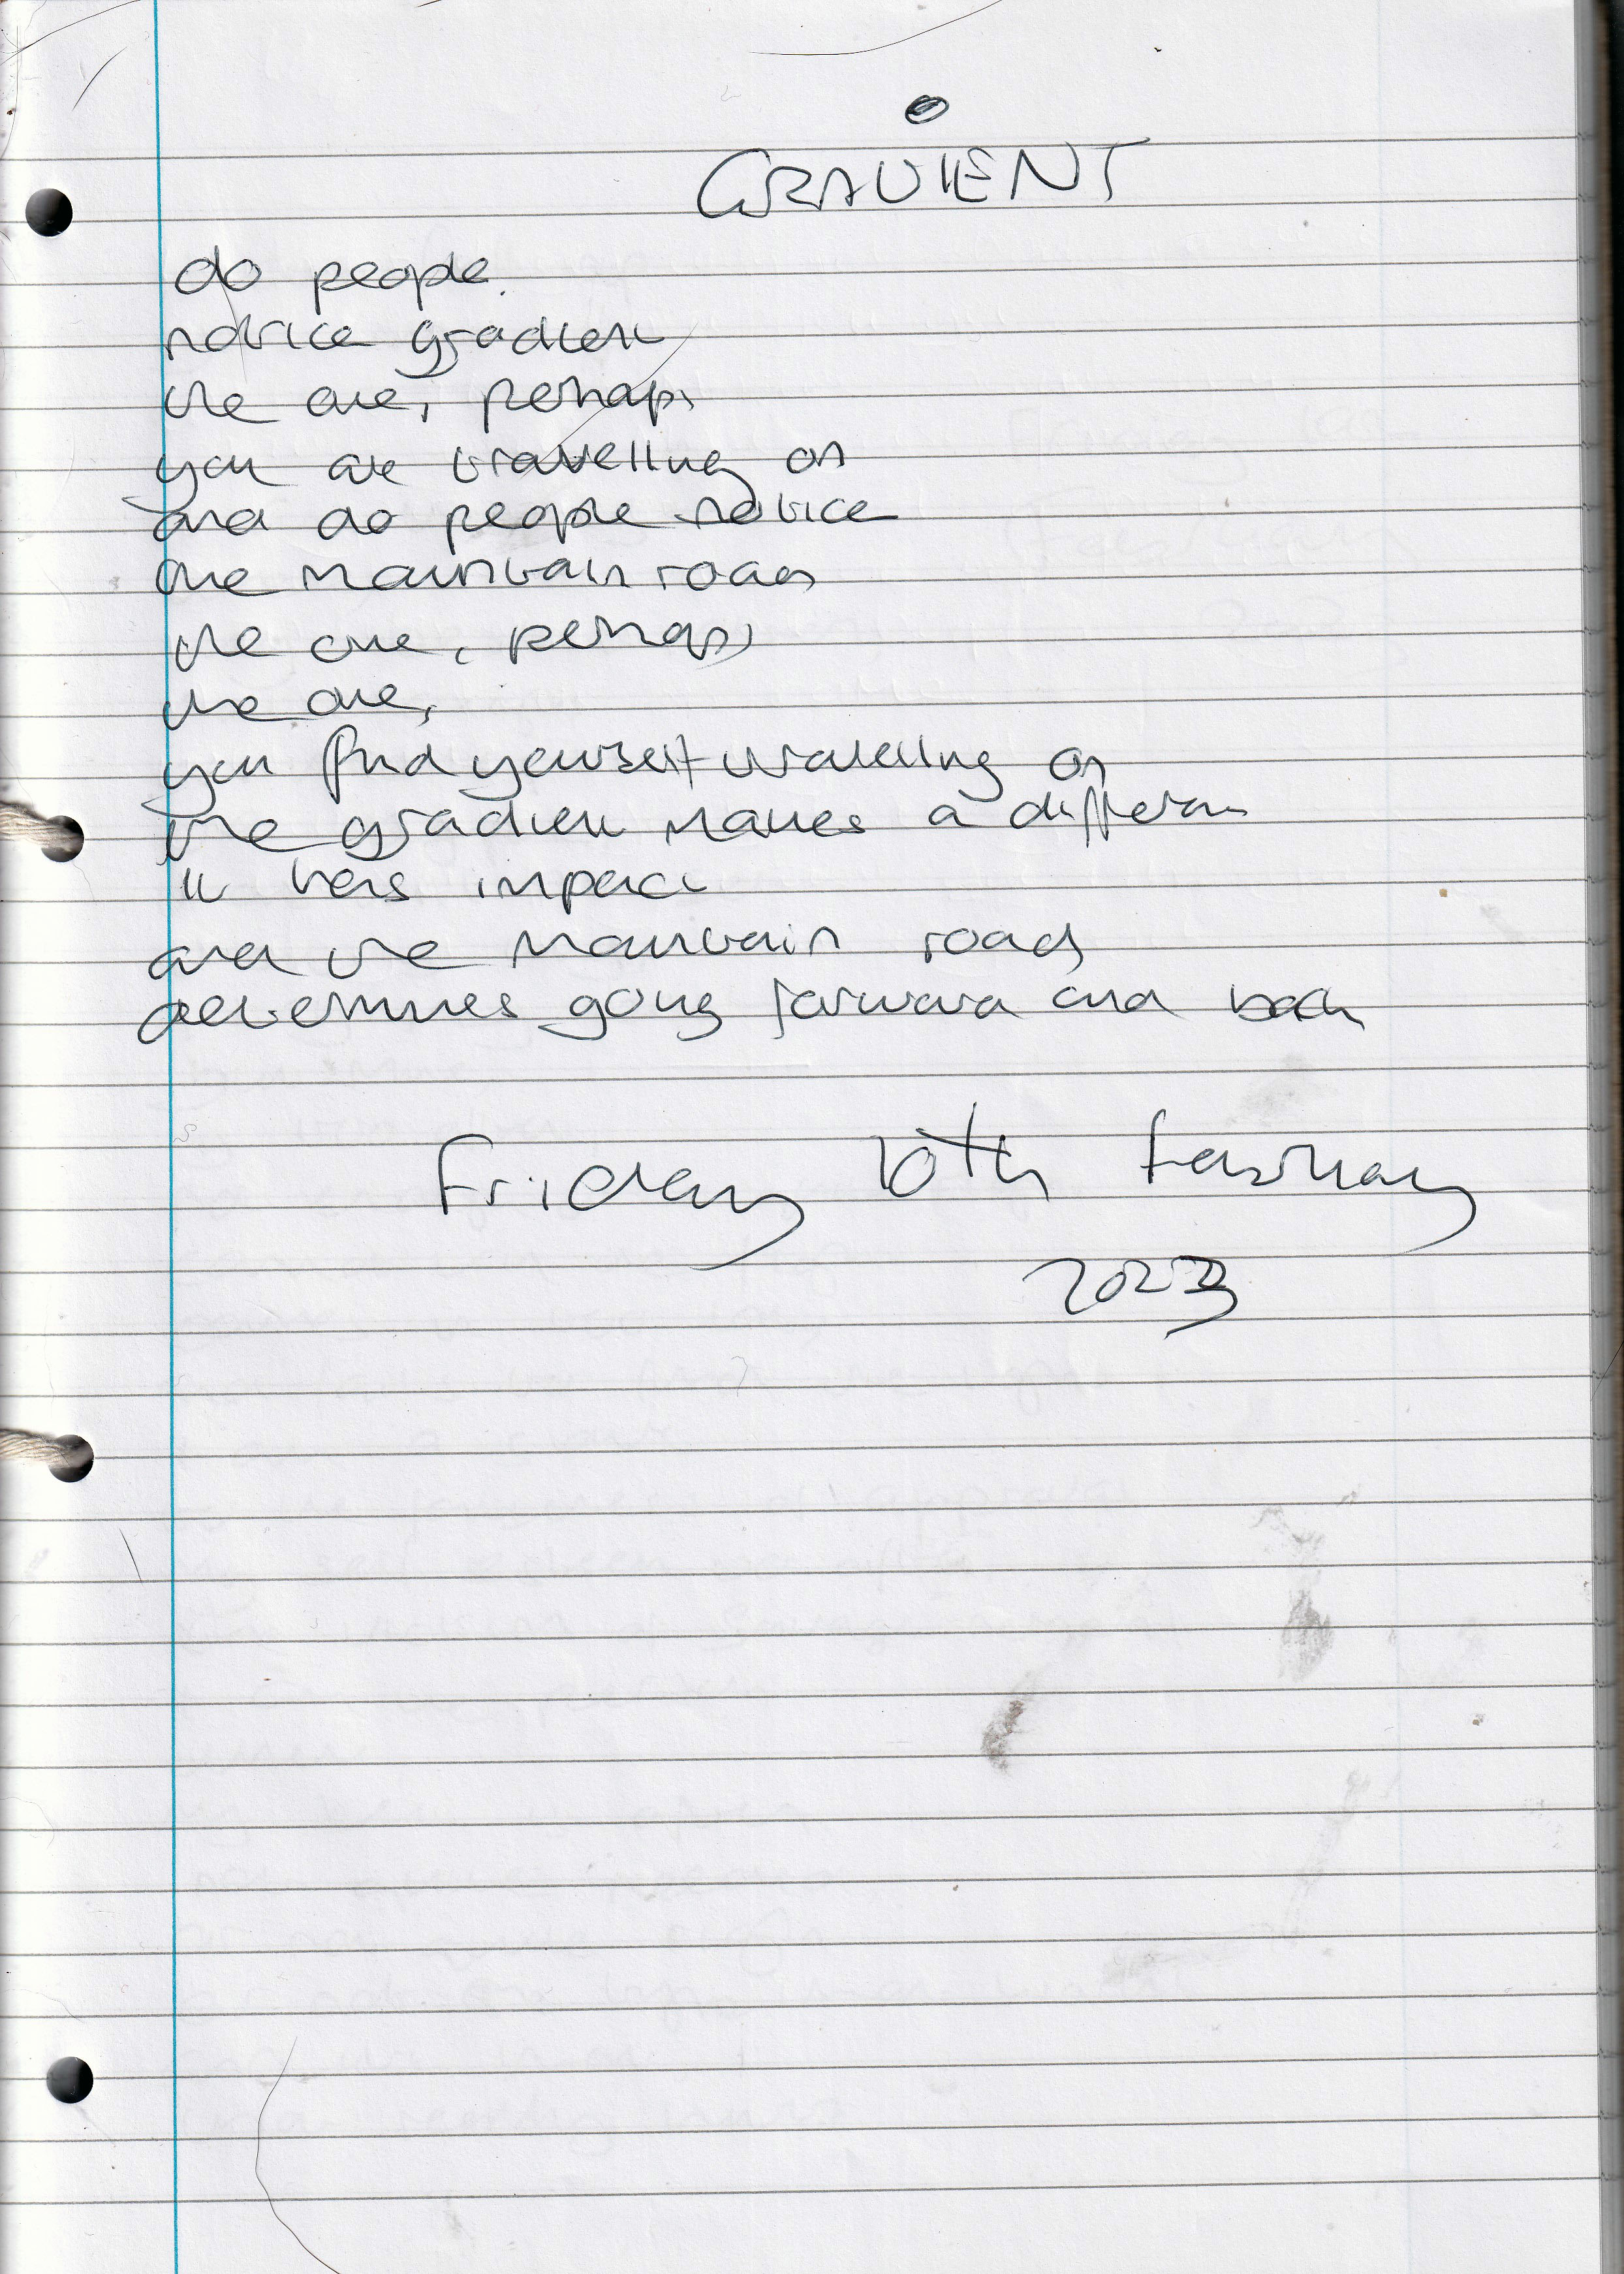 GRADIENT
do people
notice gradient
the one, perhaps
you are travelling on
and do people notice
the mountain road
the one, perhaps
the one,
you find yourself travelling on
the gradient makes a difference
it has impact
and the mountain road
determines going forward and back
Friday 10th February
2023